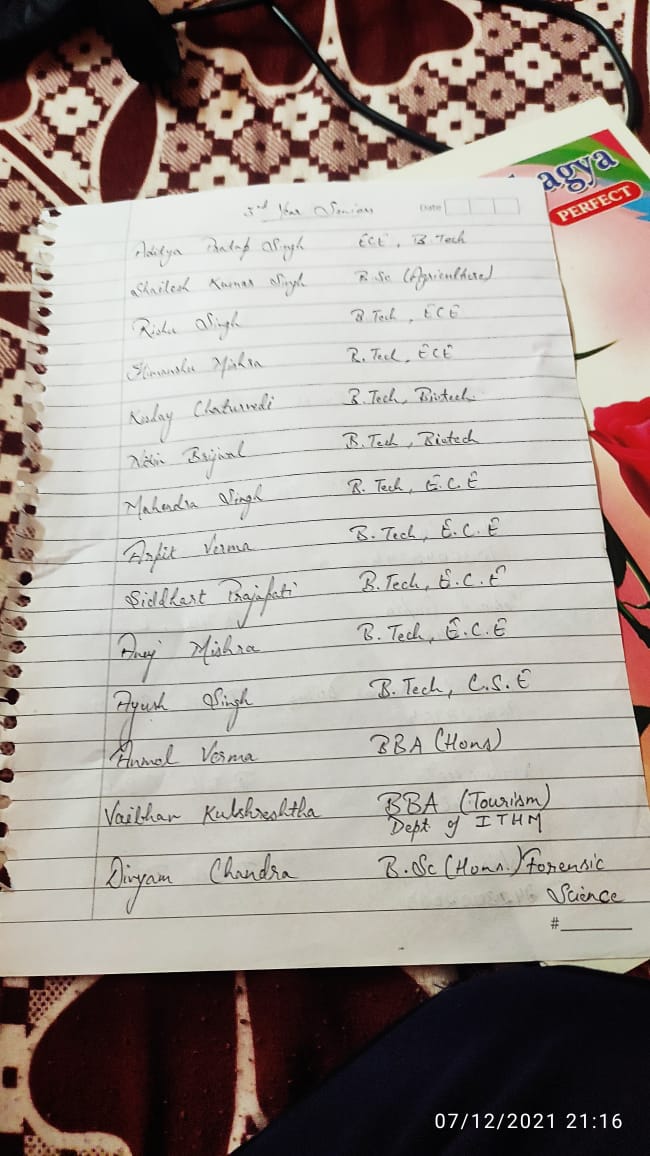 3rd Year Seniors
Date
agya
PERFECT
Aditya Pratap Singh ECE, B.Tech
Shailesh Kumar Singh B.Sc (Agriculture)
Rishu Singh B.Tech, ECE
Himanshu Mishra B.Tech, ECE
Chaturvedi B.Tech, Biotech
B.Tech, Biotech
Mahendra Singh B. Tech, E.C.E
Arpit Verma B. Tech, E.C.E
Siddhart Prajapati B.Tech, E.C.E
Mishra B. Tech, E.C.E
Ayush Singh B. Tech, C.S.E
Anmol Verma BBA (Hons)
Vaibhav Kulshreshtha BBA (Tourism)
Dept of ITHM
Divyam Chandra B.Sc (Hons.) Forensic
Science
#
07/12/2021 21:16